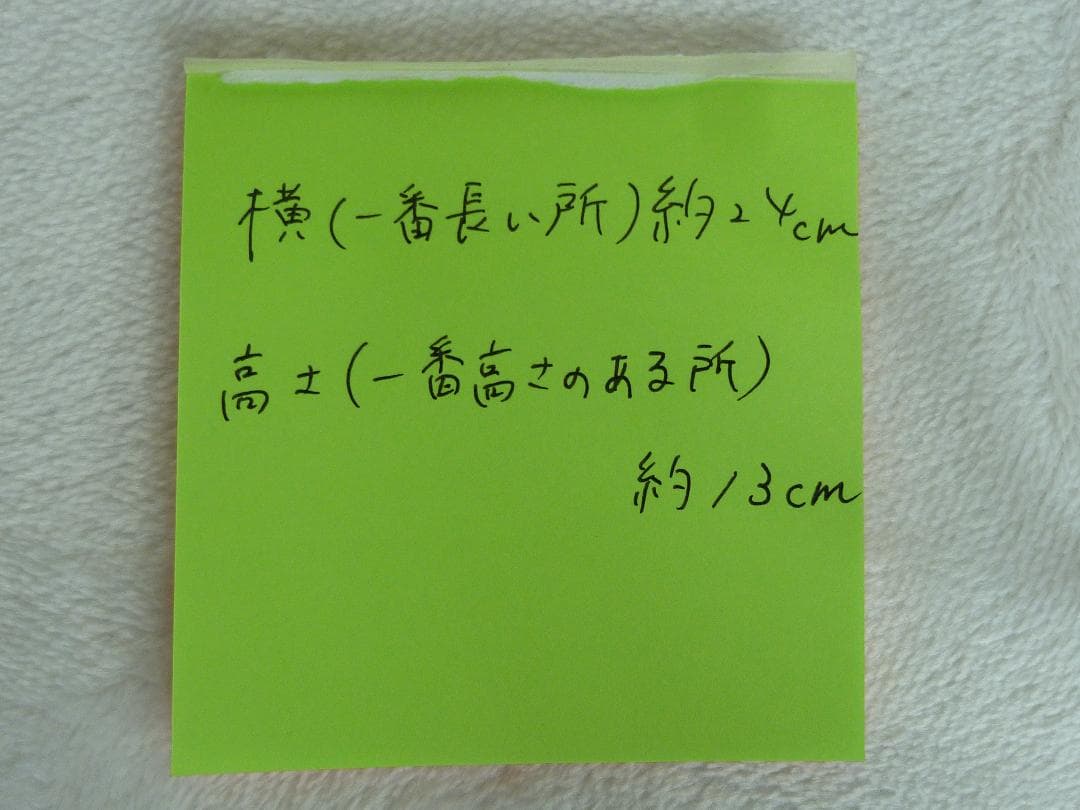 横(一番長い所)約24cm
高さ(一番高さのある所)
約13cm